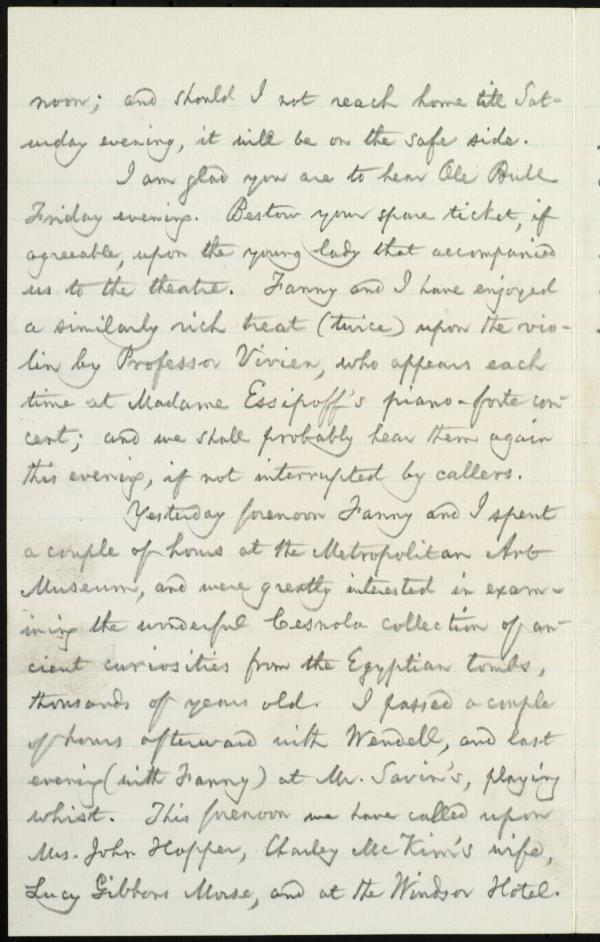 noon; and should I not reach home till Sat-
urday evening, it will be on the safe side.
I am glad you are to hear Ole Bull
Friday evening. Bestow your spare ticket, if
agreeable, upon the young lady that accompanied
us to the theatre. Fanny and I have enjoyed
a similarly rich treat (twice) upon the vio-
lin by Professor Vivien, who appears each
time at Madame Essipoff's piano-forte con-
cert; and we shall probably hear them again
this evening, if not interrupted by callers.
Yesterday forenoon Fanny and I spent
a couple of hours at the Metropolitan Art
Museum, and were greatly interested in exam-
ining the wonderful Cesnola collection of an-
cient curiosities from the Egyptian tombs,
thousands of years old. I passed a couple
of hours afterward with Wendell, and last
evening (with Fanny) at Mr. Savin's, playing
whist. This forenoon we have called upon
Mrs. John Hopper, Charley McKim's wife,
Lucy Gibbons Morse, and at the Windsor Hotel.